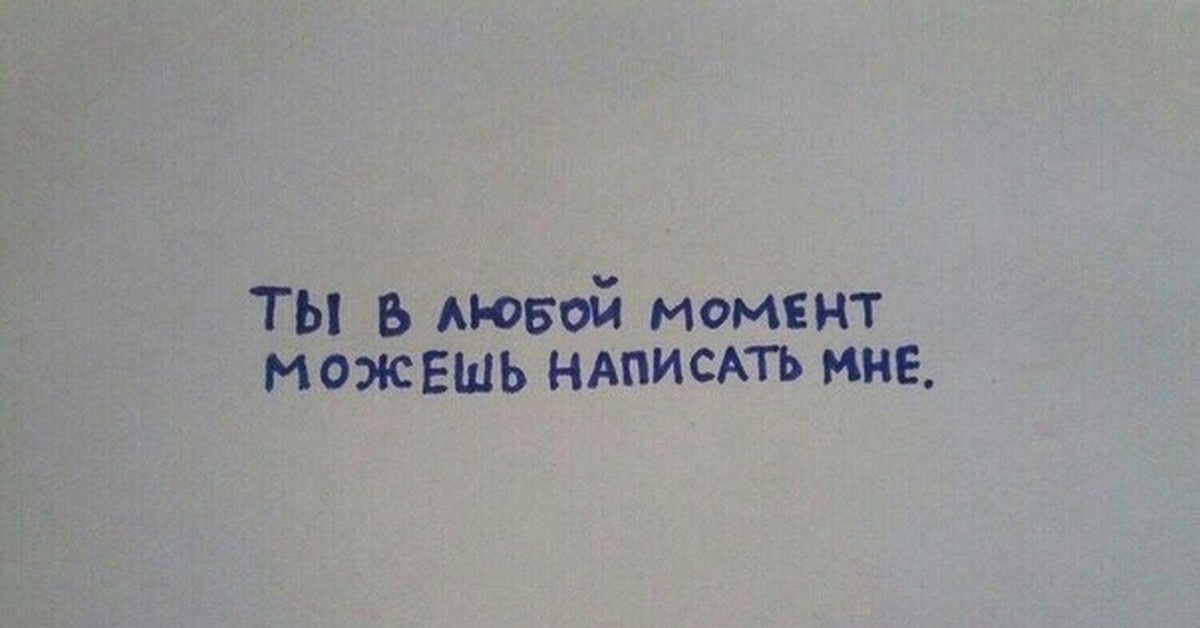 ТЫ В ЛЮБОЙ МОМЕНТ
МОЖЕШЬ НАПИСАТЬ МНЕ.